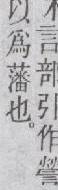 言部引作營
以爲藩也。